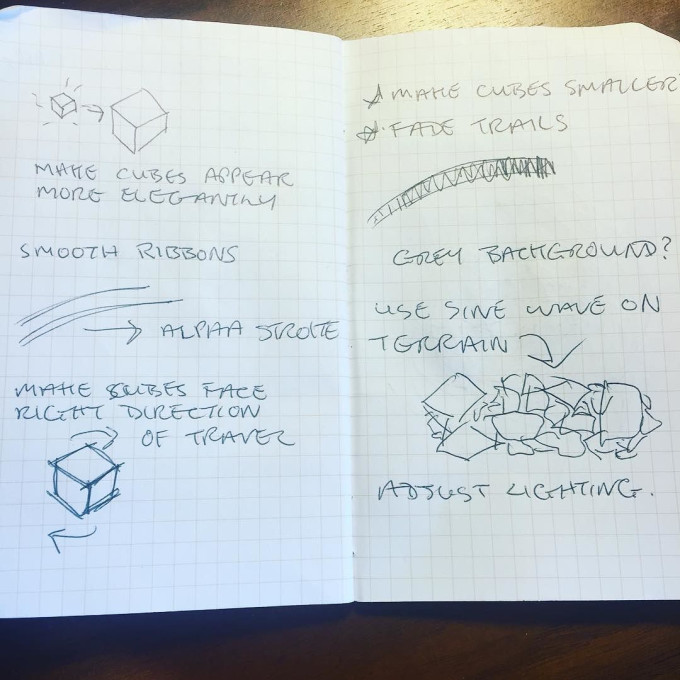 MAKE CUBES APPEAR
MORE ELEGANTLY
SMOOTH RIBBONS
ALPHA STROKE
MAKE CUBES FACE
RIGHT DIRECTION
OF TRAVEL
MAKE CUBES SMALLER
FADE TRAILS
GREY BACKGROUND?
USE SINE WAVE ON
TERRAIN
ADJUST LIGHTING.